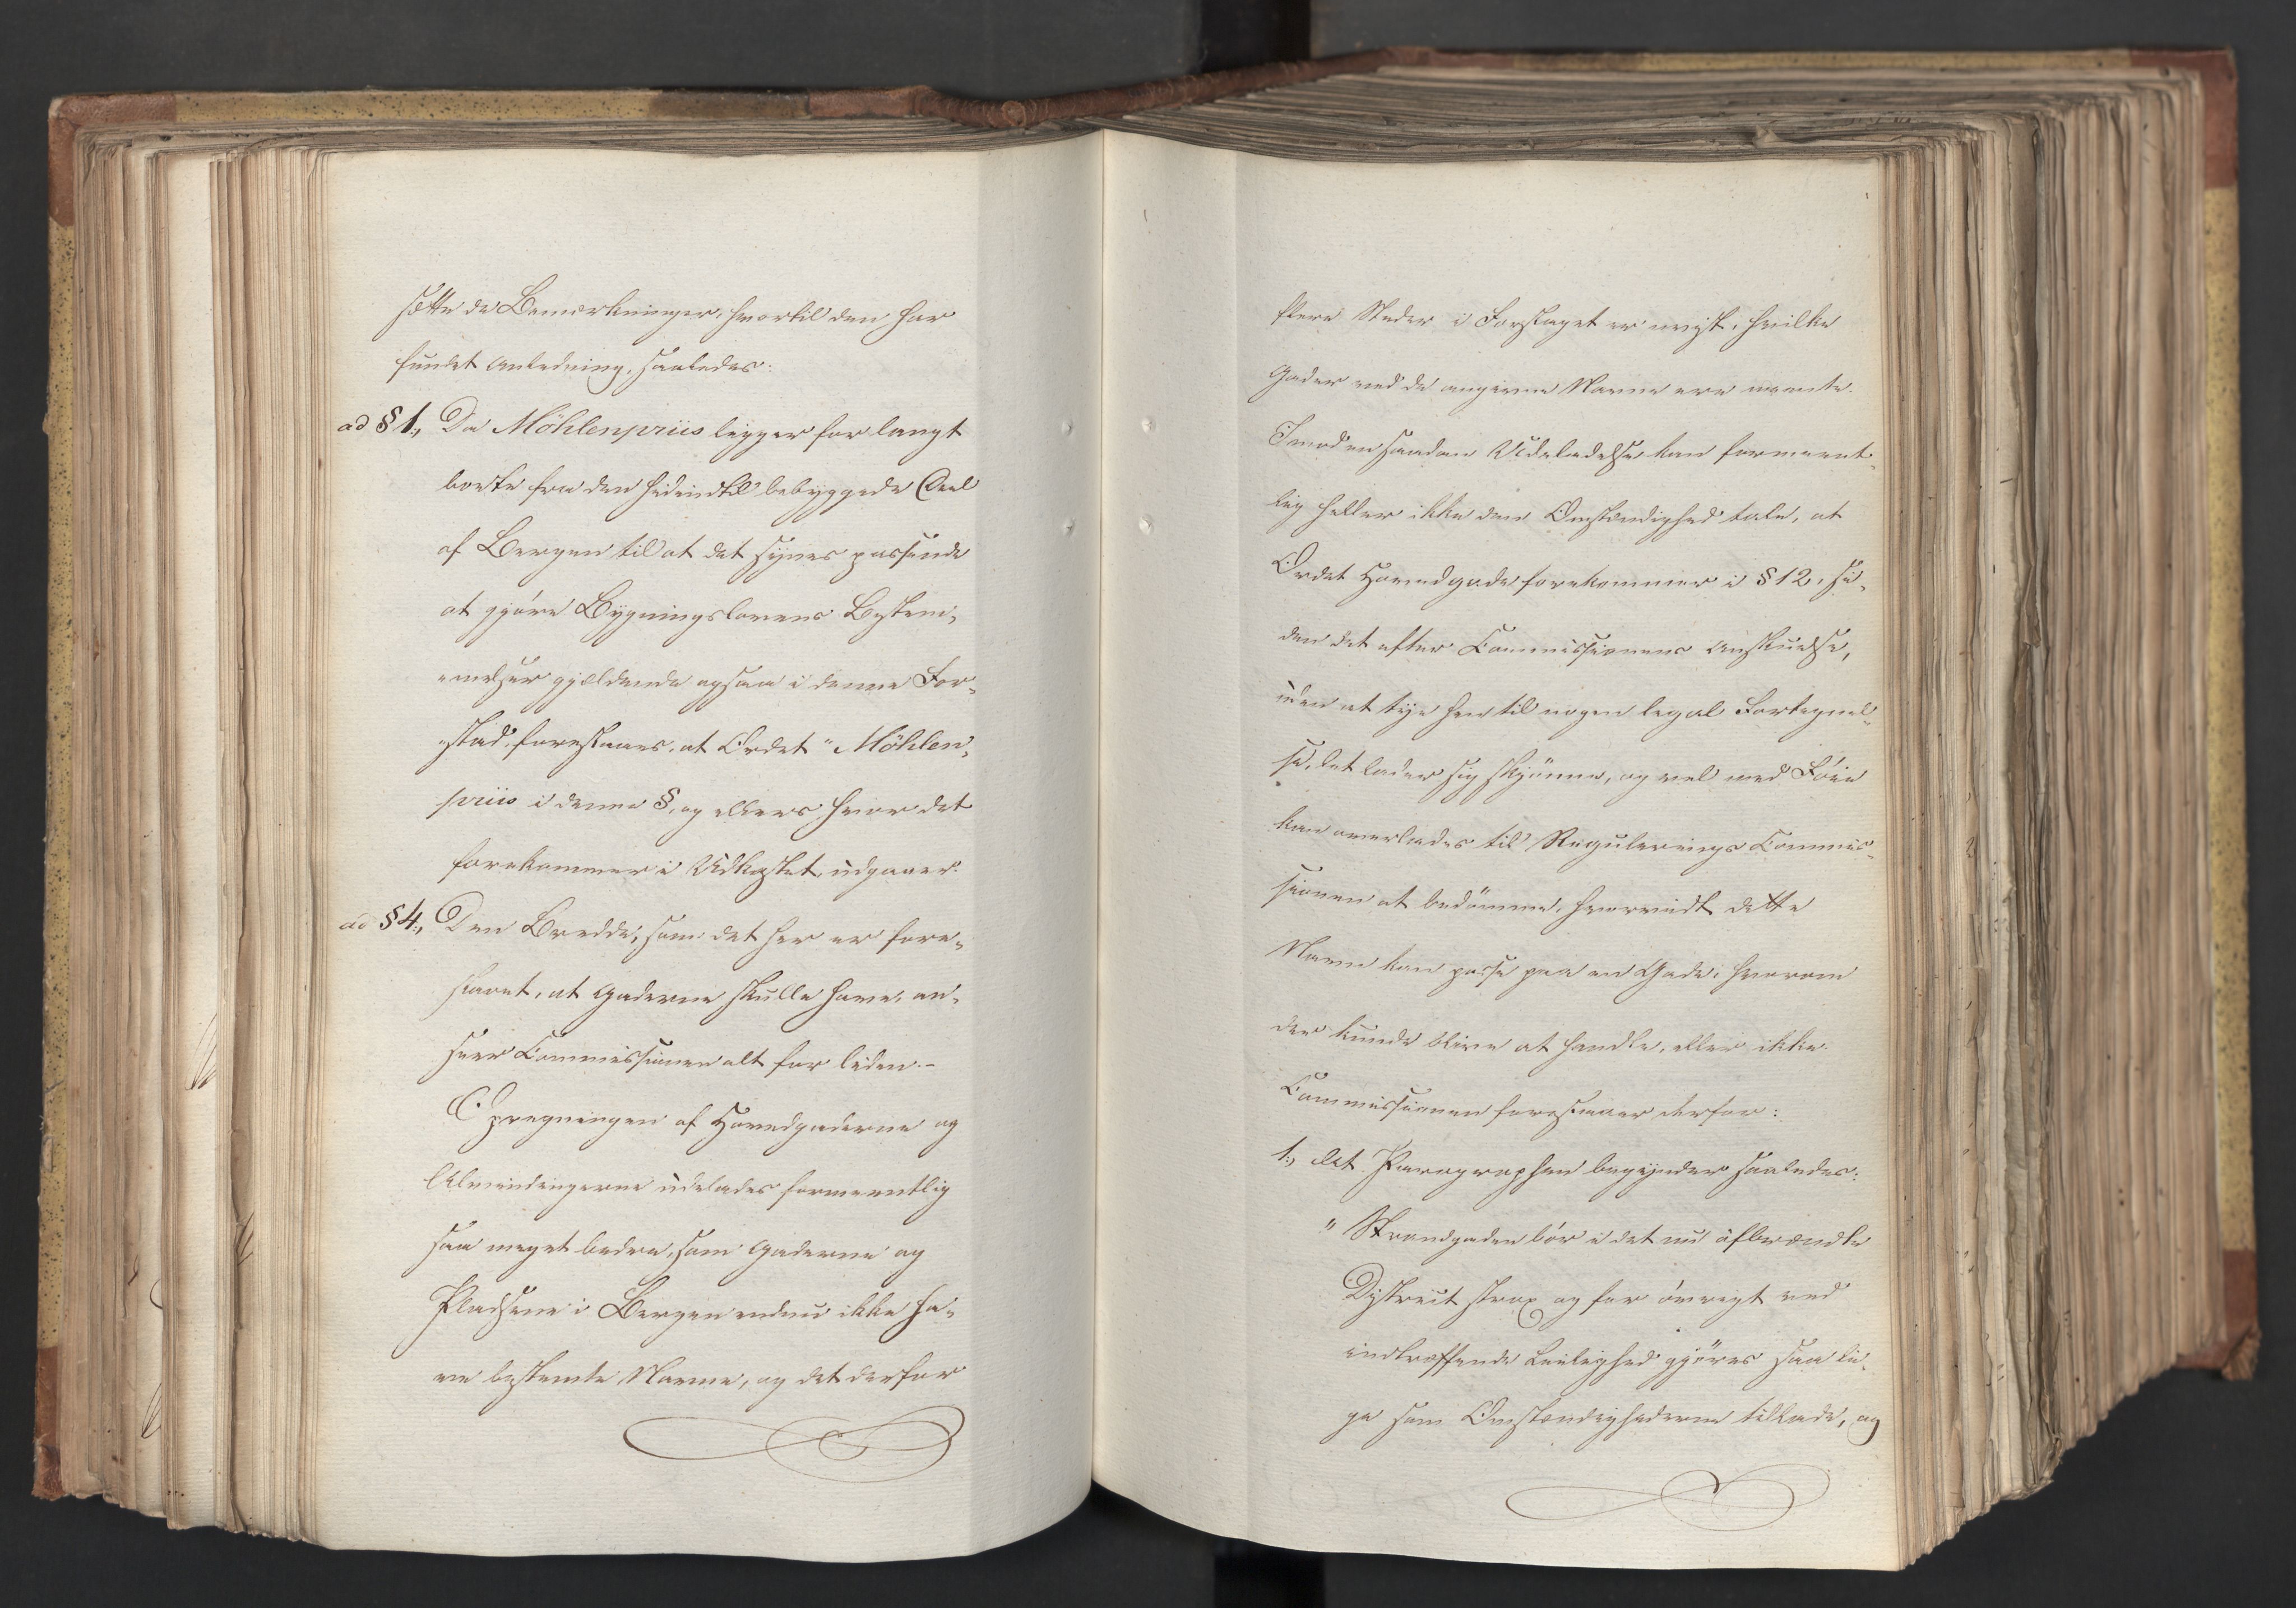 sætte de Bemærkninger, hvortil den har
fundet Anledning, saaledes:
ad § 1., Da Möhlenpriis ligger for langt
borte fra den hidindtil bebyggede Deel
af Bergen til at det synes passende
at gjøre Bygningslovens Bestem-
-melser gjældende ogsaa i denne For-
-stad, foreslaaes, at Ordet "Möhlen-
priis i denne §, og ellers hvor det
forekommer i Udkastet, udgaaer.
ad § 4., Den Bredde, som det her er fore-
slaaet, at Gaderne skulle have, an-
seer Commissionen alt for liden.-
Opregningen af Hovedgaderne og
Almindingerne udelades formeentlig
saa meget bedre, som Gaderne og
Pladsene i Bergen endnu ikke ha-
ve bestemte Navne, og det derfor
flere Steder i Forslaget er uvist, hvilke
Gader med de angivne Navne ere meente.
Imod en saadan Udeladelse kan formeent-
lig heller ikke den Omstændighed tale, at
Ordet Hovedgade forekommer i § 12, si-
den det efter Commissionens Anskuelse,
uden at tye hen til nogen legal Fortegnel-
se, let lader sig skjønne, og vel med Føie
kan overlades til Regulerings Commis-
sionen at bedömme, hvorvidt dette
Navn kan passe paa en Gade, hvorom
der kunde blive at handle, eller ikke.
Commissionen foreslaaer derfor:
1., At Paragraphen begynder saaledes:
"Strandgaden bör i det nu afbrændte
Distrikt strax og for övrigt ved
indtræffende Leilighed gjöres saa li-
ge som Omstændighederne tillade, og